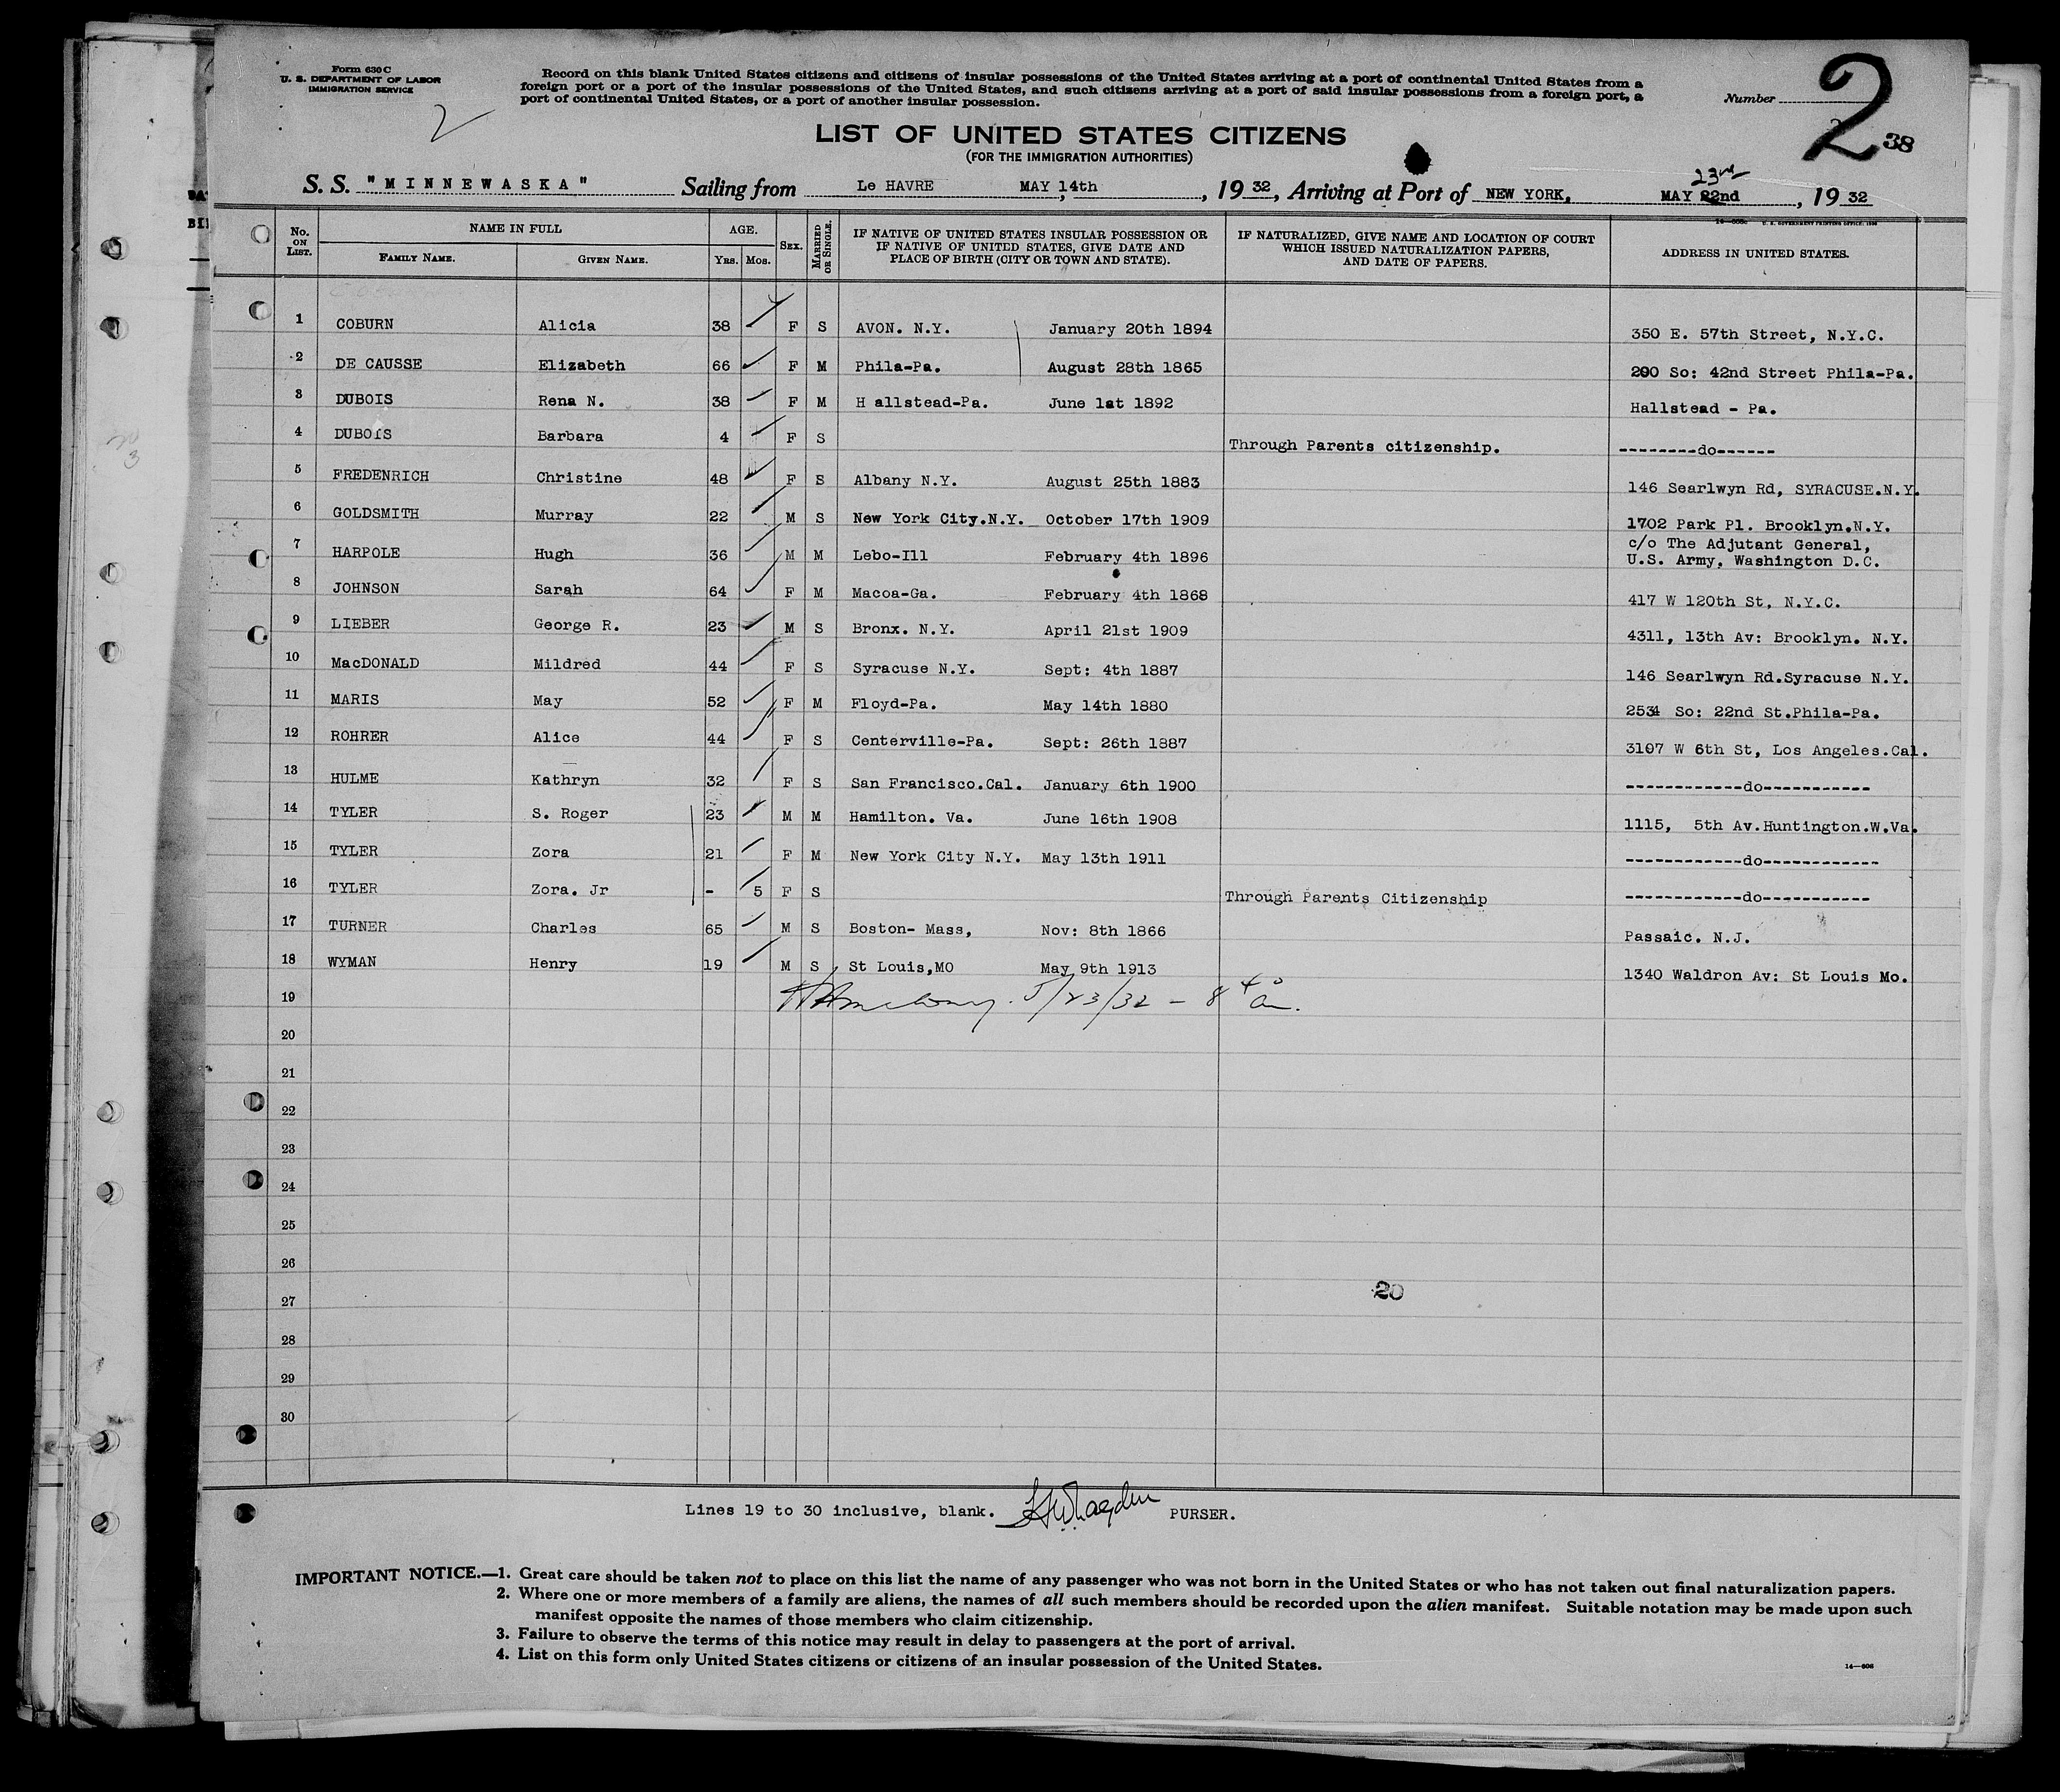 Form 630 C
U. S. DEPARTMENT OF LABOR
IMMIGRATION SERVICE
2
Record on this blank United States citizens and citizens of insular possessions of the United States arriving at a port of continental United States from a
foreign port or a port of the insular possessions of the United States, and such citizens arriving at a port of said insular possessions from a foreign port, a
port of continental United States, or a port of another insular possession.
Number
2
38
LIST OF UNITED STATES CITIZENS
(FOR THE IMMIGRATION AUTHORITIES)
23rd
S. S. "MINNEWASKA" Sailing from Le HAVRE MAY 14th, 1932, Arriving at Port of NEW YORK, MAY 22nd, 1932
No. ON LIST. NAME IN FULL FAMILY NAME. GIVEN NAME. AGE. YRS. MOS. SEX. MARRIED OR SINGLE. IF NATIVE OF UNITED STATES INSULAR POSSESSION OR IF NATIVE OF UNITED STATES, GIVE DATE AND PLACE OF BIRTH (CITY OR TOWN AND STATE). IF NATURALIZED, GIVE NAME AND LOCATION OF COURT WHICH ISSUED NATURALIZATION PAPERS, AND DATE OF PAPERS. ADDRESS IN UNITED STATES.
1 COBURN Alicia 38 F S AVON. N.Y. January 20th 1894 350 E. 57th Street, N.Y.C.
2 DE CAUSSE Elizabeth 66 F M Phila-Pa. August 28th 1865 200 So: 42nd Street Phila-Pa.
3 DUBOIS Rena N. 38 F M H allstead-Pa. June 1st 1892 Hallstead - Pa.
4 DUBOIS Barbara 4 F S Through Parents citizenship. --------do------
5 FREDENRICH Christine 48 F S Albany N.Y. August 25th 1883 146 Searlwyn Rd, SYRACUSE.N.Y.
6 GOLDSMITH Murray 22 M S New York City.N.Y. October 17th 1909 1702 Park Pl. Brooklyn.N.Y.
7 HARPOLE Hugh 36 M M Lebo-Ill February 4th 1896 c/o The Adjutant General,
U.S. Army, Washington D.C.
8 JOHNSON Sarah 64 F M Macoa-Ga. February 4th 1868 417 W 120th St, N.Y.C.
9 LIEBER George R. 23 M S Bronx. N.Y. April 21st 1909 4311, 13th Av: Brooklyn. N.Y.
10 MacDONALD Mildred 44 F S Syracuse N.Y. Sept: 4th 1887 146 Searlwyn Rd.Syracuse N.Y.
11 MARIS May 52 F M Floyd-Pa. May 14th 1880 2534 So: 22nd St.Phila-Pa.
12 ROHRER Alice 44 F S Centerville-Pa. Sept: 26th 1887 3107 W 6th St, Los Angeles.Cal.
13 HULME Kathryn 32 F S San Francisco.Cal. January 6th 1900 ------------do-----------
14 TYLER S. Roger 23 M M Hamilton. Va. June 16th 1908 1115, 5th Av.Huntington.W.Va.
15 TYLER Zora 21 F M New York City N.Y. May 13th 1911 ------------do------------
16 TYLER Zora. Jr - 5 F S Through Parents Citizenship ------------do-----------
17 TURNER Charles 65 M S Boston- Mass, Nov: 8th 1866 Passaic. N.J.
18 WYMAN Henry 19 M S St Louis,MO May 9th 1913 1340 Waldron Av: St Louis Mo.
19 5/23/32 - 8 40 am.
20
21
22
23
24
25
26
20
27
28
29
30
Lines 19 to 30 inclusive, blank. PURSER.
IMPORTANT NOTICE.—1. Great care should be taken not to place on this list the name of any passenger who was not born in the United States or who has not taken out final naturalization papers.
2. Where one or more members of a family are aliens, the names of all such members should be recorded upon the alien manifest. Suitable notation may be made upon such
manifest opposite the names of those members who claim citizenship.
3. Failure to observe the terms of this notice may result in delay to passengers at the port of arrival.
4. List on this form only United States citizens or citizens of an insular possession of the United States.
14—606